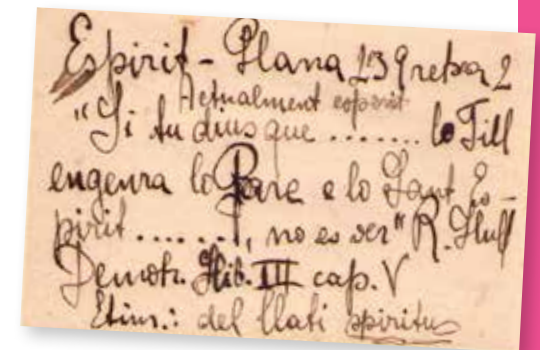 Espirit - Plana 23 Gretxa 2
Actualment esperit
"Si tu dius que ....... lo Fill
engenra lo Pare e lo Sant Es-
pirit ......., no es ver" R. Llull
Demotr. Llib. III cap. V
Etim.: del llatí spiritus